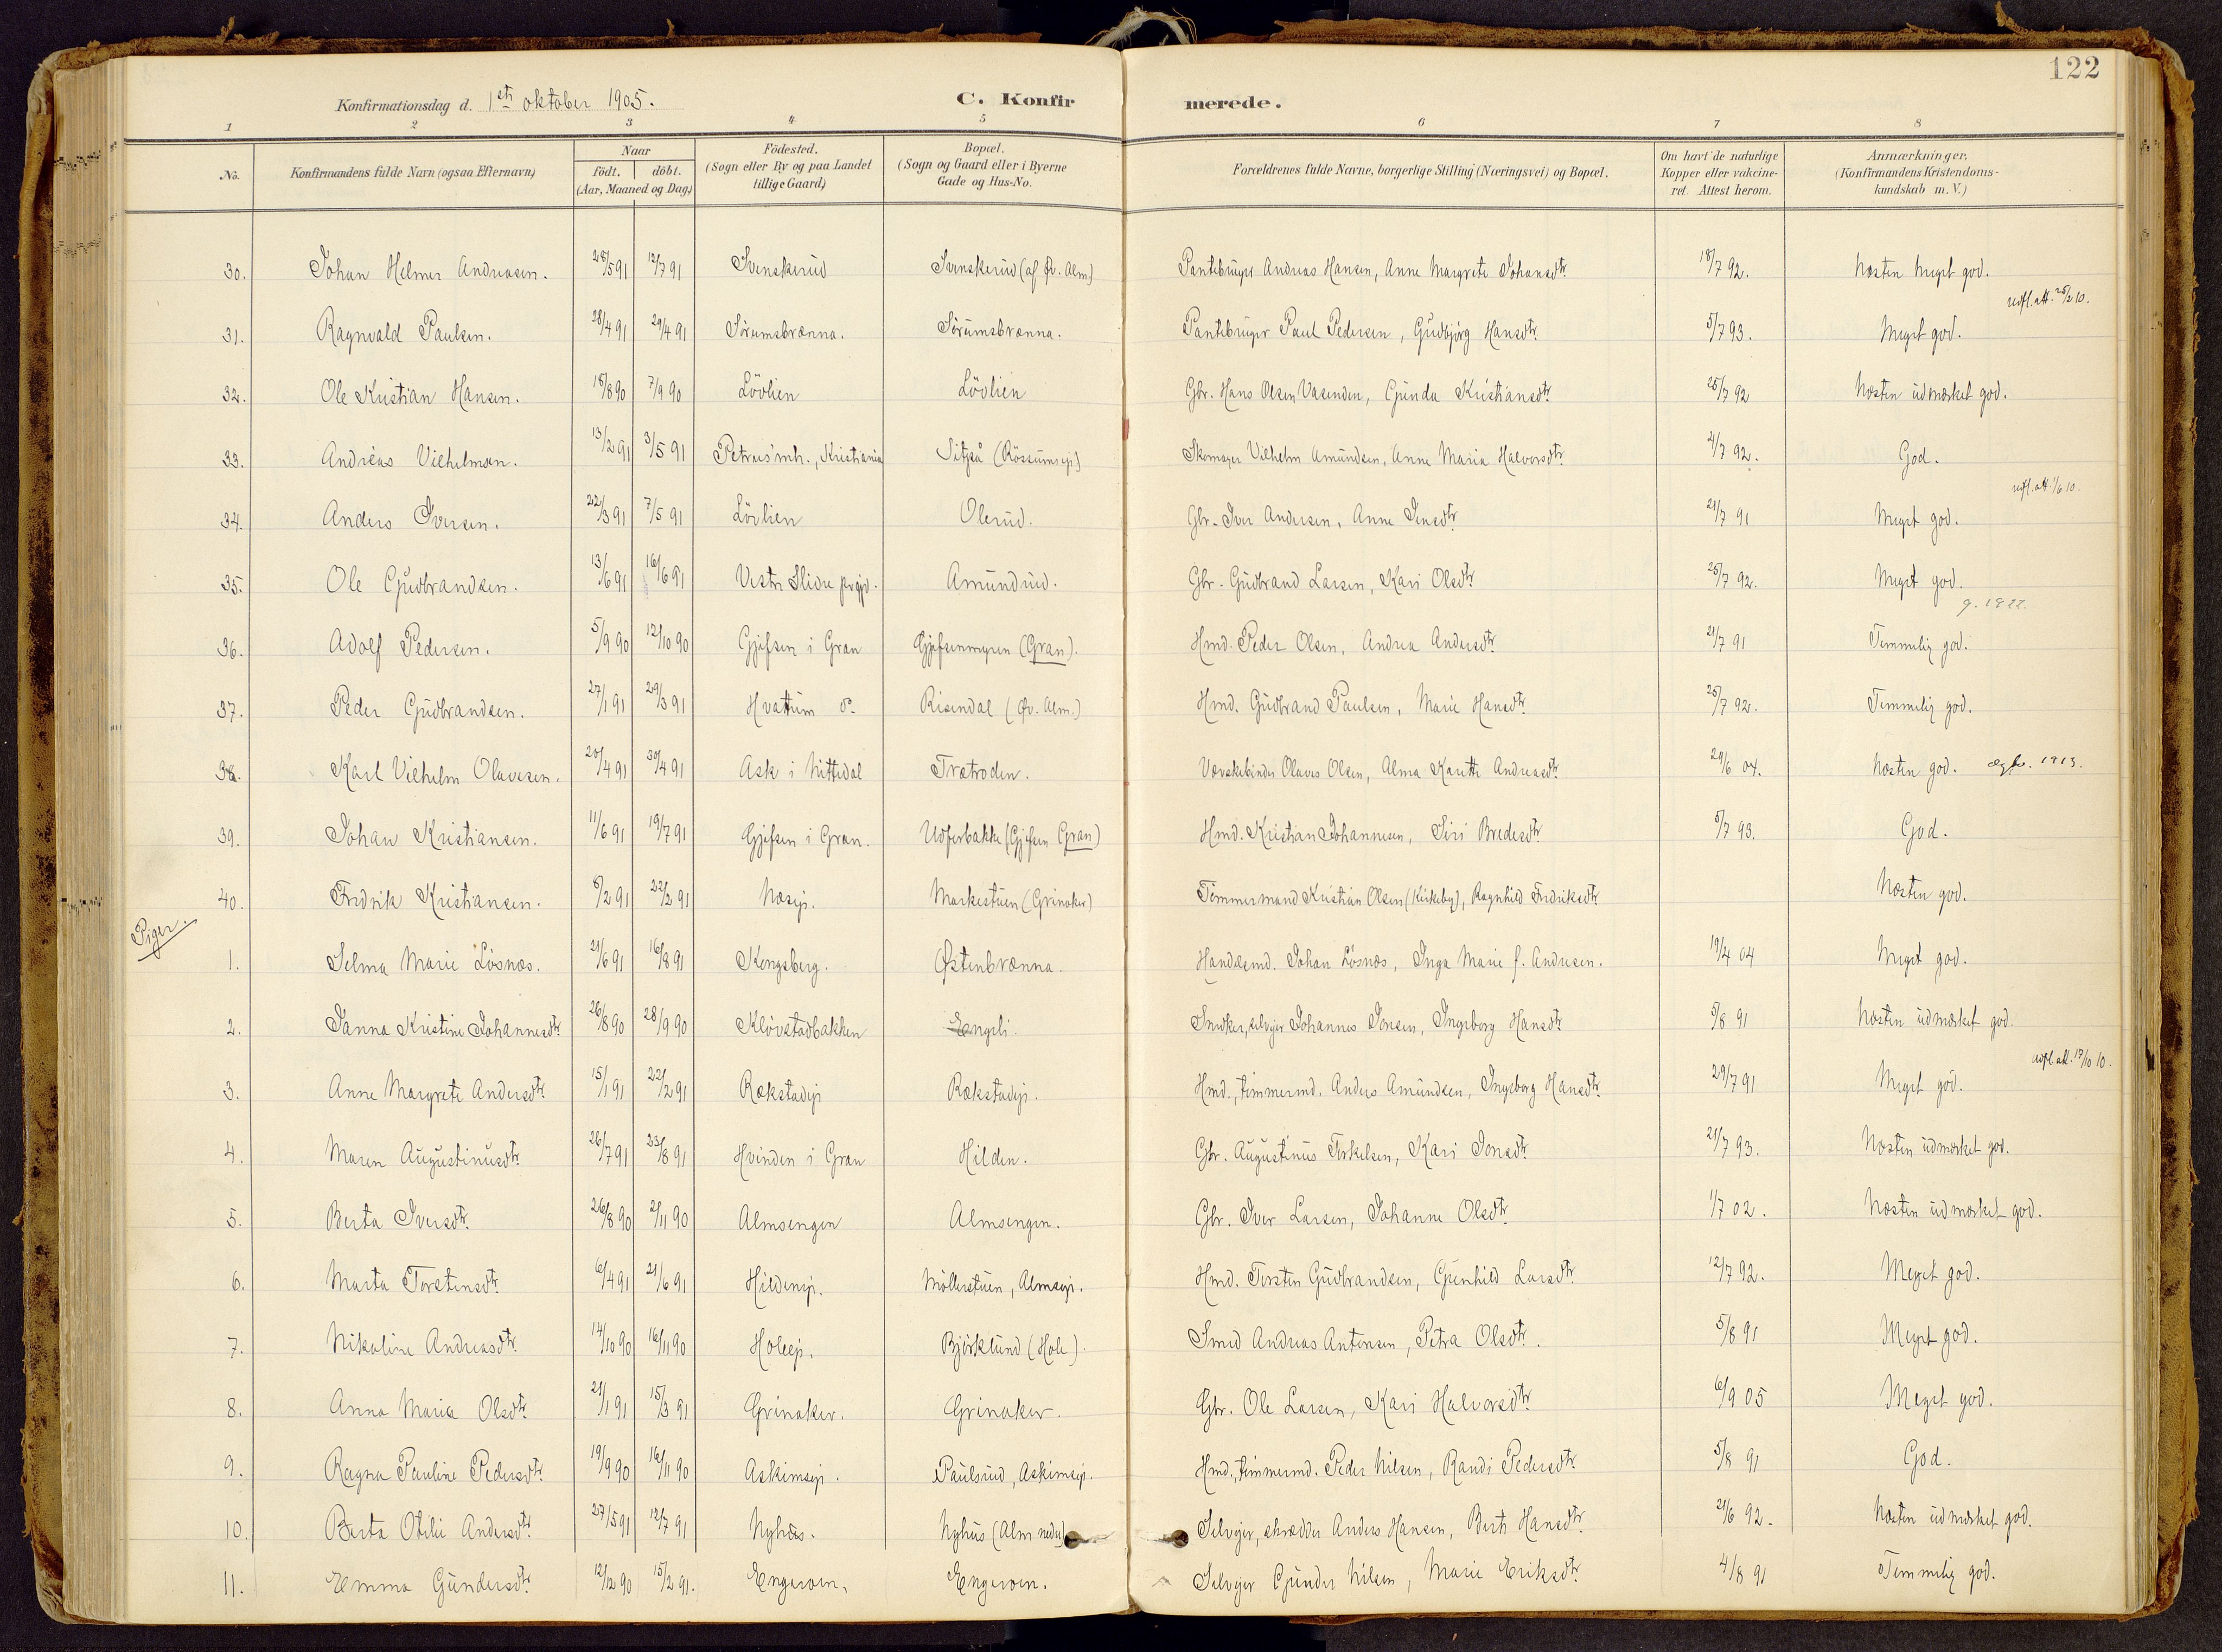 122
Konfirmationsdag d. 1ste oktober 1905. C. Konfirmerede.
1 2 3 4 5 6 7 8
No. Konfirmandens fulde Navn (ogsaa Efternavn) Naar födt. döbt. (Aar, Maaned og Dag) Födested. (Sogn eller By og paa Landet tillige Gaard) Bopæl. (Sogn og Gaard eller i Byerne Gade og Hus-No. Forældrenes fulde Navne, borgerlige Stilling (Næringsvei) og Bopæl. Om havt de naturlige Kopper eller vakcineret. Attest herom. Anmærkninger. (Konfirmandens Kristendomskundskab m. V.)
30. Johan Helmer Andreasen. 28/5 91 12/7 91 Svenskerud Svenskerud (af Øv. Alm) Pantebruger Andreas Hansen, Anne Margrete Johansdtr. 18/7 92. Næsten meget god.
udfl. att. 25/2 10.
31. Ragnvald Paulsen. 28/4 91 29/4 91 Sörumsbrænna. Sörumsbrænna. Pantebruger Paul Pedersen, Gudbjörg Hansdtr. 5/7 93. Meget god.
32. Ole Kristian Hansen. 18/8 90 7/9 90 Lövlien Lövlien Gbr. Hans Olsen Vasenden, Gunda Kristiansdtr. 25/7 92 Næsten udmærket god.
33. Andreas Vilhelmsen. 13/2 91 3/5 91 Petrus'mh., Kristiania (Rössumsej.) Skomager Vilhelm Amundsen, Anne Maria Halvorsdtr. 4/7 92. God.
udfl. att. 1/6 10.
34. Anders Iversen. 22/3 91 7/5 91 Lövlien Olerud. Gbr. Iver Andersen, Anne Jensdtr. 21/7 91 Meget god.
35. Ole Gudbrandsen. 13/6 91 16/6 91 Vestre Slidre prgjd. Amundrud. Gbr. Gudbrand Larsen, Kari Olsdtr. 25/7 92. Meget god.
g. 1922.
36. Adolf Pedersen. 5/9 90 12/10 90 Gjefsen i Gran Gjefsenmyren (Gran). Hmd. Peder Olsen, Andrea Andersdtr. 21/7 91 Temmelig god.
37. Peder Gudbrandsen. 27/1 91 29/3 91 Hvattum do. Risendal (Øv. Alm.) Hmd. Gudbrand Paulsen, Marie Hansdtr. 25/7 92. Temmelig god.
38. Karl Vilhelm Olavesen. 20/4 91 30/4 91 Ask i Nittedal Trætroden. Værskebinder Olaves Olsen, Alma Karette Andreasdtr. 29/6 04. Næsten god. 1913.
39. Johan Kristiansen. 11/6 91 19/7 91 Gjefsen i Gran. Udferbakke (Gjefsen Gran) Hmd. Kristian Johannesen, Siri Bredesdtr. 5/7 93. God.
40. Fredrik Kristiansen. 8/2 91 22/2 91 Næsej. Markestuen (Grinaker) Tömmermand Kristian Olsen (Kirkeby), Ragnhild Fredriksdtr. Næsten god.
Piger.
1. Selma Marie Lösnæs. 21/6 91 16/8 91 Kongsberg. Østenbrænna. Handelsmd. Johan Lösnæs, Inga Marie f. Andresen. 19/4 04 Meget god.
2. Janna Kristine Johannesdtr. 26/8 90 28/9 90 Klövstadbakken Engeli. Snedker, selvejer Johannes Jonsen, Ingeborg Hansdtr. 5/8 91 Næsten udmærket god.
udfl. att. 17/10 10.
3. Anne Margrete Andersdtr. 15/1 91 22/2 91 Rækstadej. Rækstadej. Hmd., tømmermd. Anders Amundsen, Ingeborg Hansdtr. 29/7 91 Meget god.
4. Maren Augustinusdtr. 26/7 91 23/8 91 Hvinden i Gran Hilden. Gbr. Augustinus Torkelsen, Kari Jonsdtr. 21/7 93. Næsten udmærket god.
5. Berta Iversdtr. 26/8 90 2/11 90 Almsengen Almsengen. Gbr. Iver Larsen, Johanne Olsdtr. 1/7 02. Næsten udmærket god.
6. Marta Torstensdtr. 6/4 91 21/6 91 Hildenej. Möllerstuen, Almsej. Hmd. Torsten Gudbrandsen, Gunhild Larsdtr. 12/7 92. Meget god.
7. Nikoline Andreasdtr. 14/10 90 16/11 90 Holeej. Björklund (Hole). Smed Andreas Antonsen, Petra Olsdtr. 5/8 91 Meget god.
8. Anna Maria Olsdtr. 21/1 91 15/3 91 Grinaker. Grinaker. Gbr. Ole Larsen, Kari Halvorsdtr. 6/9 05 Meget god.
9. Ragna Pauline Pedersdtr. 19/9 90 16/11 90 Askimsej. Paulsrud, Askimsej. Hmd., tømmermd. Peder Nilsen, Randi Pedersdtr. 5/8 91 God.
10. Berta Otelie Andersdtr. 27/5 91 12/7 91 Nyhus. Nyhus (Alm nedre) Selvejer, skrædder Anders Hansen, Berte Hansdtr. 21/6 92. Næsten udmærket god.
11. Emma Gundersdtr. 12/12 90 15/2 91. Engeroen. Engeroen. Selvejer Gunder Nilsen, Marie Eriksdtr. 4/8 91 Temmelig god.